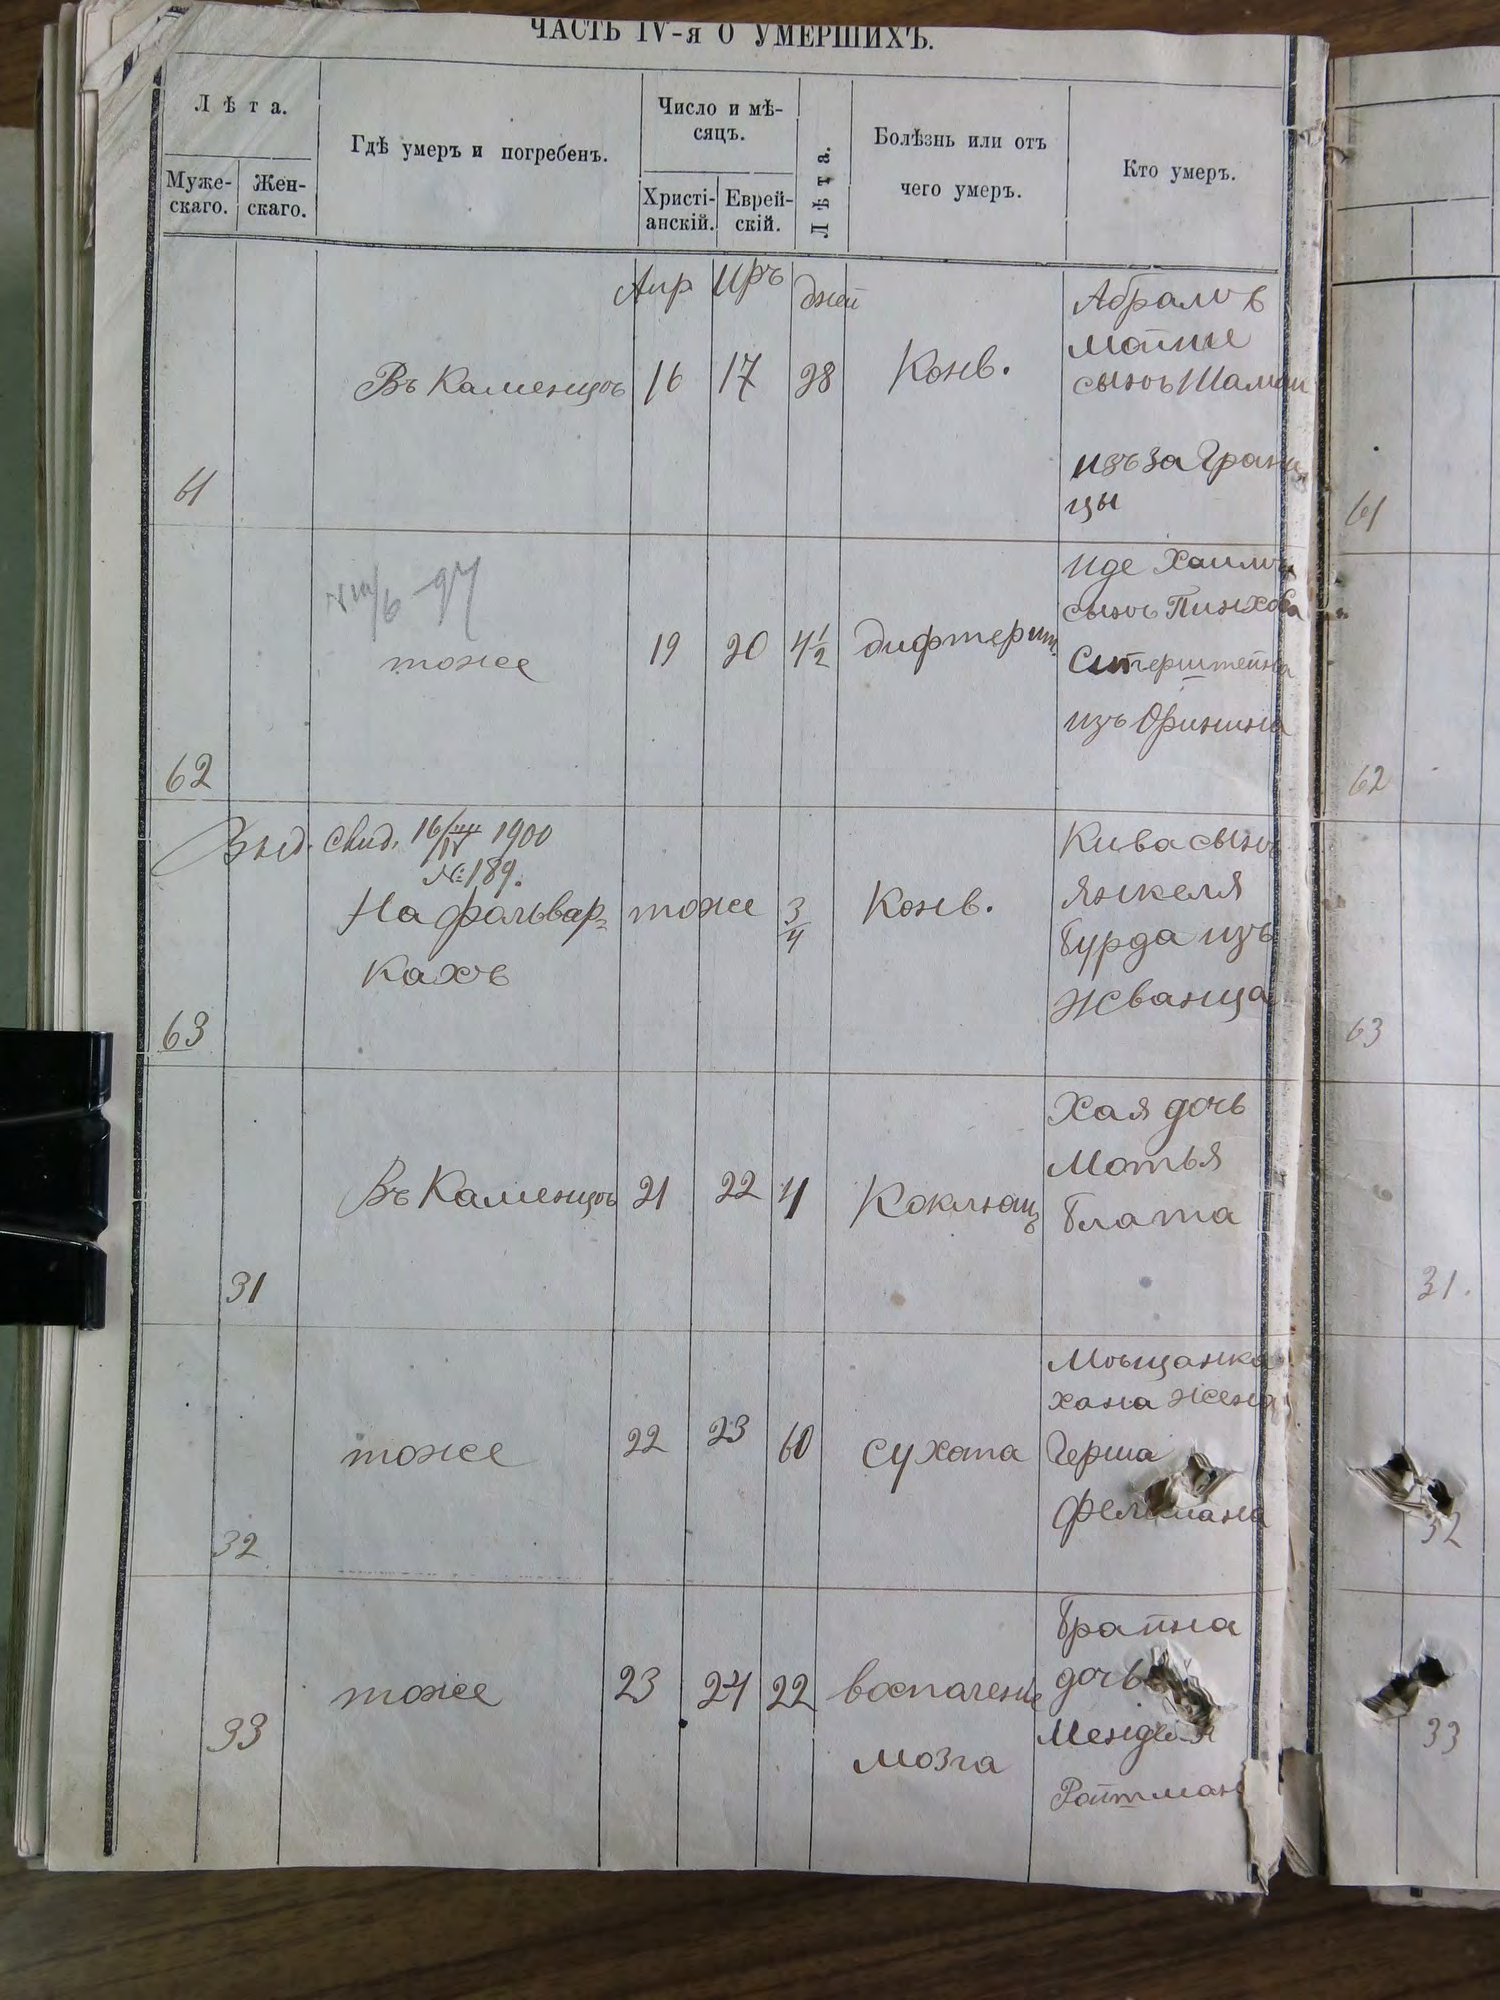 ЧАСТЬ IV-я О УМЕРШИХЪ.
Лѣта.
Муже-
скаго.
Жен-
скаго.
Гдѣ умеръ и погребенъ.
Число и мѣ-
сяцъ.
Христі-
анскій.
Еврей-
скій.
Лѣта.
Болѣзнь или отъ
чего умеръ.
Кто умеръ.
61
Въ Каменцѣ
Апр
16
Иръ
17
дней
28
Конв.
Абрамъ
Мойше
сынъ
изъ за Грани
цы
62
тоже
19
20
4 1/2
дифтерит.
Иде Хаимъ
сынъ Пинхоса
изъ Оринина
63
Выд. свид. 16/IV 1900
№ 189.
На фольвар-
кахъ
тоже
3/4
Конв.
Кива сынъ
Янкеля
Бурда изъ
Жванца
31
Въ Каменцѣ
21
22
4
Коклюшъ
Хая дочь
Мотья
Блата
32
тоже
22
23
60
сухота
Мѣщанка
Хана жена
Герша
Фельмана
33
тоже
23
24
22
воспаленіе
мозга
Брайна
дочь
Менделя
Ройтман
61
62
63
31.
32
33